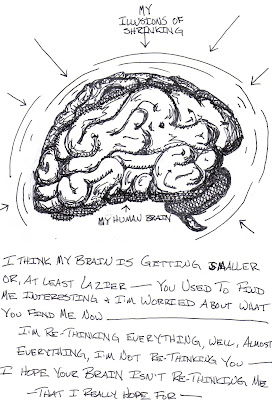 MY
ILLUSIONS OF
SHRINKING
MY HUMAN BRAIN
I THINK MY BRAIN IS GETTING SMALLER
OR, AT LEAST LAZIER — YOU USED TO FIND
ME INTERESTING & I'M WORRIED ABOUT WHAT
YOU FIND ME NOW
I'M RE-THINKING EVERYTHING, WELL, ALMOST
EVERYTHING, I'M NOT RE-THINKING YOU —
I HOPE YOUR BRAIN ISN'T RE-THINKING ME
—THAT I REALLY HOPE FOR —